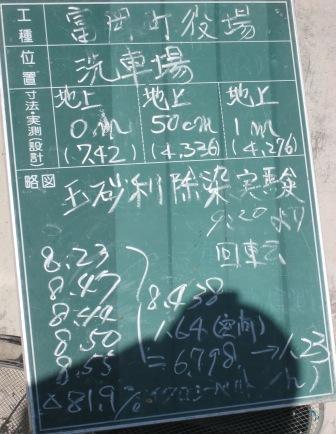 工種 富岡町役場
位置 洗車場
寸法・実測(設計) 地上 0m (7.42) 地上 50cm (4.336) 地上 1m (4.276)
略図
玉砂利除染実験
9:20より
8.23
8.47
8.44
8.50
8.55
8.438
1.64(空間)
=6.798→1.23
△81.9%